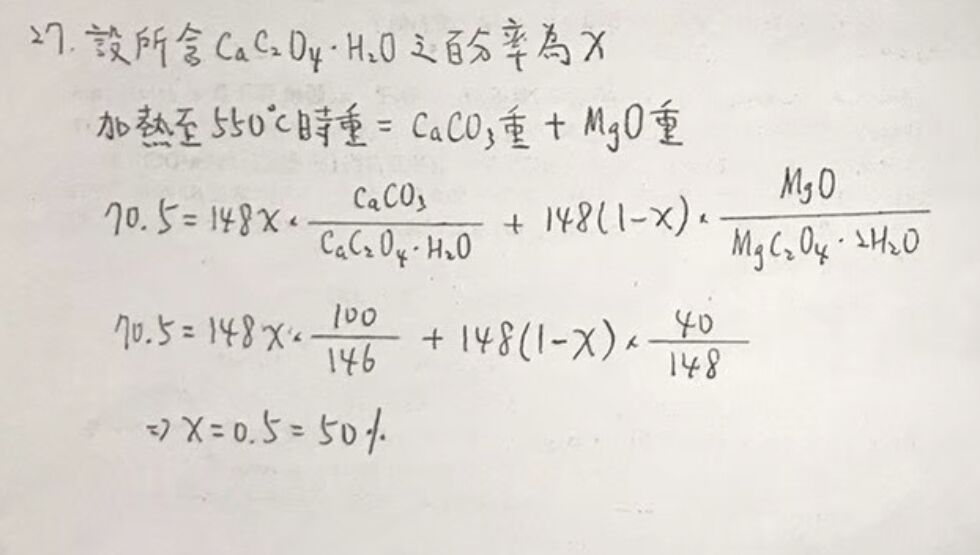 27. 設所含 CaC₂O₄·H₂O 之百分率為 X
加熱至 550°C 時重 = CaCO₃重 + MgO重
70.5 = 148X × CaCO₃ / CaC₂O₄·H₂O + 148(1-X) × MgO / MgC₂O₄·2H₂O
70.5 = 148X × 100 / 146 + 148(1-X) × 40 / 148
⇒ X = 0.5 = 50%